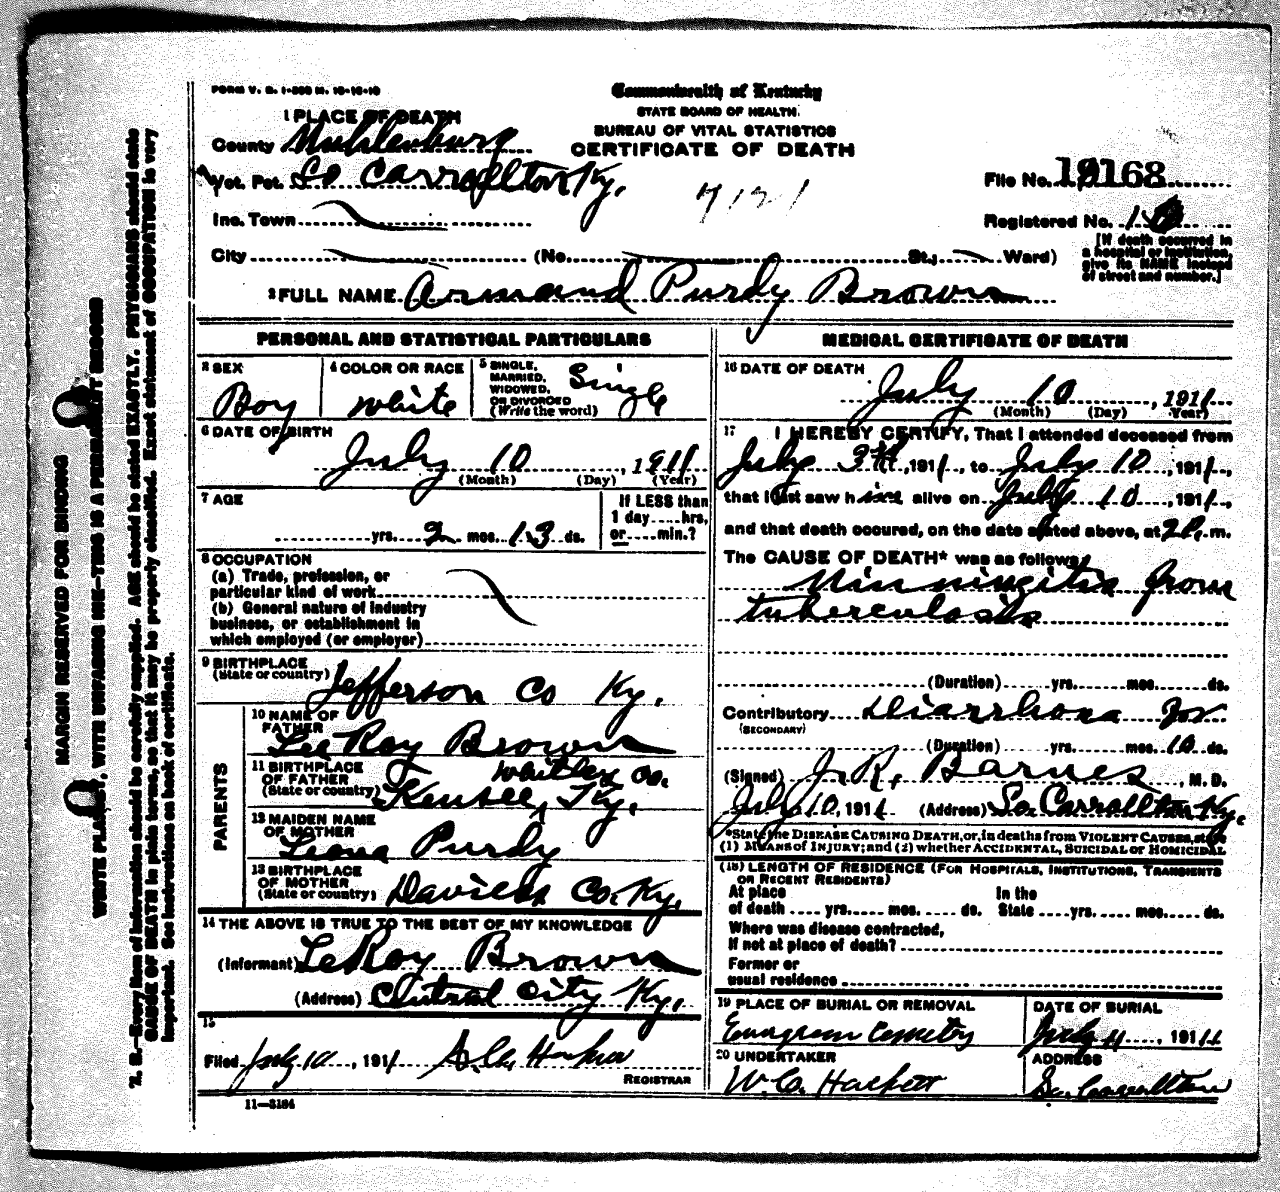 FORM V. S. 1-
Commonwealth of Kentucky
STATE BOARD OF HEALTH.
BUREAU OF VITAL STATISTICS
CERTIFICATE OF DEATH
1 PLACE OF DEATH
County Muhlenburg
Vot. Pct. So Carrollton Ky.
Inc. Town
City (No. St.; Ward)
7121
File No. 19168
Registered No. 1
[If death occurred in a hospital or institution, give its NAME instead of street and number.]
2 FULL NAME Armand Purdy Brown
PERSONAL AND STATISTICAL PARTICULARS
3 SEX Boy
4 COLOR OR RACE White
5 SINGLE, MARRIED, WIDOWED, OR DIVORCED (Write the word) Single
6 DATE OF BIRTH July 10, 1911
(Month) (Day) (Year)
7 AGE
yrs. 2 mos. 13 ds.
If LESS than 1 day.....hrs, or.....min.?
8 OCCUPATION
(a) Trade, profession, or particular kind of work
(b) General nature of industry business, or establishment in which employed (or employer)
9 BIRTHPLACE (State or country) Jefferson Co Ky.
PARENTS
10 NAME OF FATHER LeeRoy Brown
11 BIRTHPLACE OF FATHER (State or country) Whitley Co. Ky.
12 MAIDEN NAME OF MOTHER Leona Purdy
13 BIRTHPLACE OF MOTHER (State or country) Daviess Co. Ky.
14 THE ABOVE IS TRUE TO THE BEST OF MY KNOWLEDGE
(Informant) LeRoy Brown
(Address) Central City Ky.
15
Filed July 10, 1911
REGISTRAR
11—3184
MEDICAL CERTIFICATE OF DEATH
16 DATE OF DEATH
July 10, 1911
(Month) (Day) (Year)
17 I HEREBY CERTIFY, That I attended deceased from
July 3rd, 1911, to July 10, 1911,
that I last saw him alive on July 10, 1911,
and that death occured, on the date stated above, at 2 P. m.
The CAUSE OF DEATH* was as follows:
Minningitis from
tuberculosis
(Duration) yrs. mos. ds.
Contributory Diarrhoea for
(SECONDARY)
(Duration) yrs. mos. 10 ds.
(Signed) J. R. Barnes, M. D.
July 10, 1911 (Address) So. Carrollton Ky.
*State the DISEASE CAUSING DEATH, or, in deaths from VIOLENT CAUSES, state
(1) MEANS of INJURY; and (2) whether ACCIDENTAL, SUICIDAL or HOMICIDAL
(18) LENGTH OF RESIDENCE (FOR HOSPITALS, INSTITUTIONS, TRANSIENTS
OR RECENT RESIDENTS)
At place of death .... yrs. .... mos. .... ds. In the State .... yrs. .... mos. .... ds.
Where was disease contracted,
If not at place of death?
Former or
usual residence
19 PLACE OF BURIAL OR REMOVAL Evergreen Cemetry
DATE OF BURIAL July 11, 1911
20 UNDERTAKER W. C. Hackett
ADDRESS So. Carrollton
MARGIN RESERVED FOR BINDING
WRITE PLAINLY, WITH UNFADING INK—THIS IS A PERMANENT RECORD
N. B.—Every item of information should be carefully supplied. AGE should be stated EXACTLY. PHYSICIANS should state
CAUSE OF DEATH in plain terms, so that it may be properly classified. Exact statement of OCCUPATION is very
important. See instructions on back of certificate.